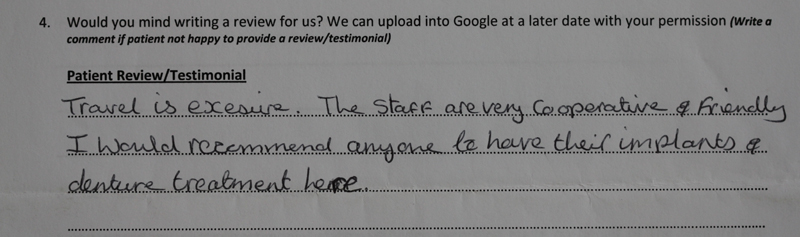 4. Would you mind writing a review for us? We can upload into Google at a later date with your permission (Write a
comment if patient not happy to provide a review/testimonial)
Patient Review/Testimonial
Travel is exesive. The Staff are very Cooperative & Friendly
I Would recommend anyone to have their implants &
denture treatment here.